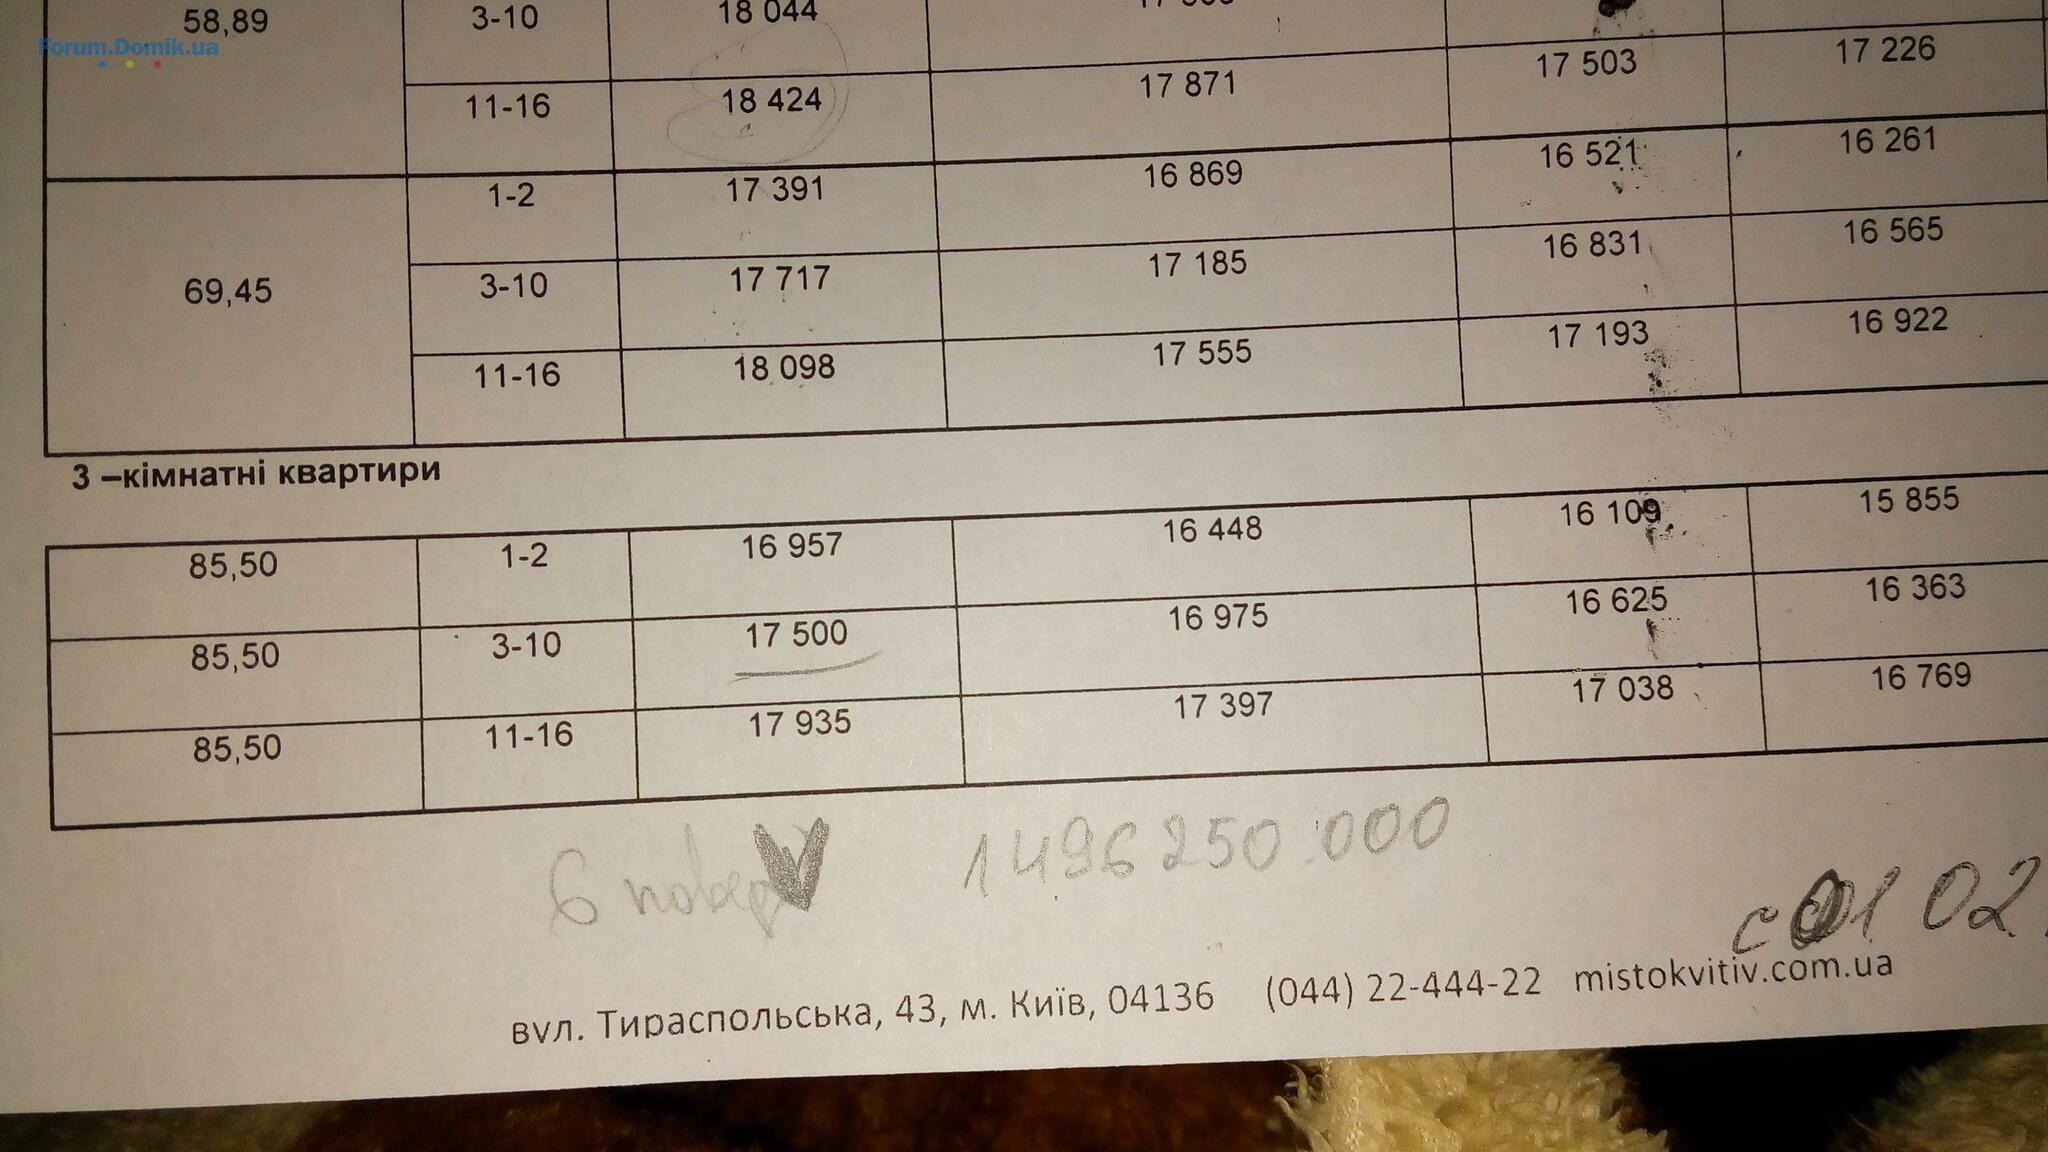 58,89 3-10 18 044
Forum.Domik.ua
11-16 18 424 17 871 17 503 17 226
1-2 17 391 16 869 16 521 16 261
69,45 3-10 17 717 17 185 16 831 16 565
11-16 18 098 17 555 17 193 16 922
3 –кімнатні квартири
85,50 1-2 16 957 16 448 16 109 15 855
85,50 3-10 17 500 16 975 16 625 16 363
85,50 11-16 17 935 17 397 17 038 16 769
6 1496250.000
02
вул. Тираспольська, 43, м. Київ, 04136 (044) 22-444-22 mistokvitiv.com.ua